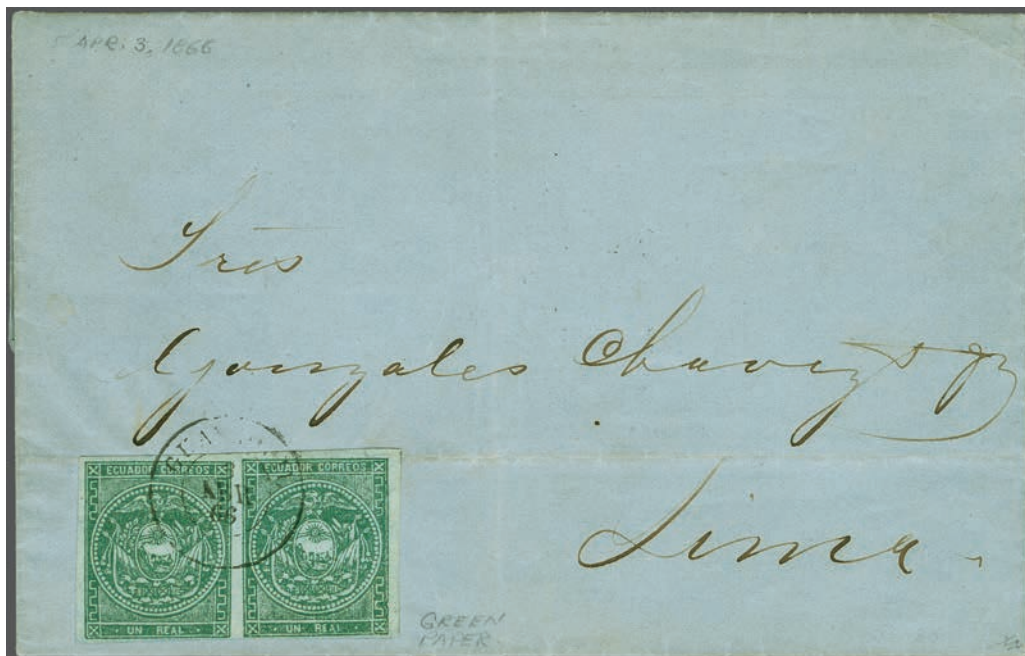 APR. 3, 1866
Sres
Gonzales Chavez
Lima
ECUADOR CORREOS ECUADOR CORREOS
UN REAL UN REAL
GREEN
PAPER